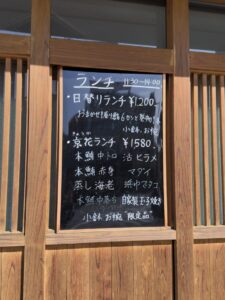 ランチ 11:30~14:00
・日替りランチ ¥1,200
小鉢、お椀
きょうか
・京花ランチ ¥1580
本鮪中トロ 活ヒラメ
本鮪赤身 マダイ
蒸し海老 浜中マダコ
本鮪中落ち 自家製玉子焼き
小鉢 お椀 "限定品"